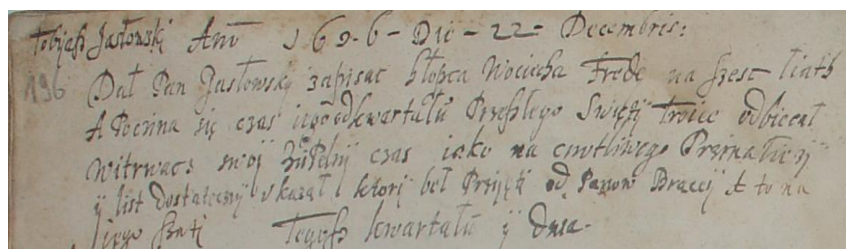 Tobijasz Jasłowski Anno 1696 - Die - 22 - Decembris:
196
Dał Pan Jasłowsky zapisac hłopca Wociecha Fredę na szesc liath
A Poczina się czas iego od kwartału Przeszłego Swiętij Troice odbiecał
witrwacz swoij zupełnij czas iako na cnotliwego Przinalezij
ij list dostatecznij vkazał ktorij beł Przijęti od Panow Braccij A to na
iego szati Tegosz kwartału ij dnia.